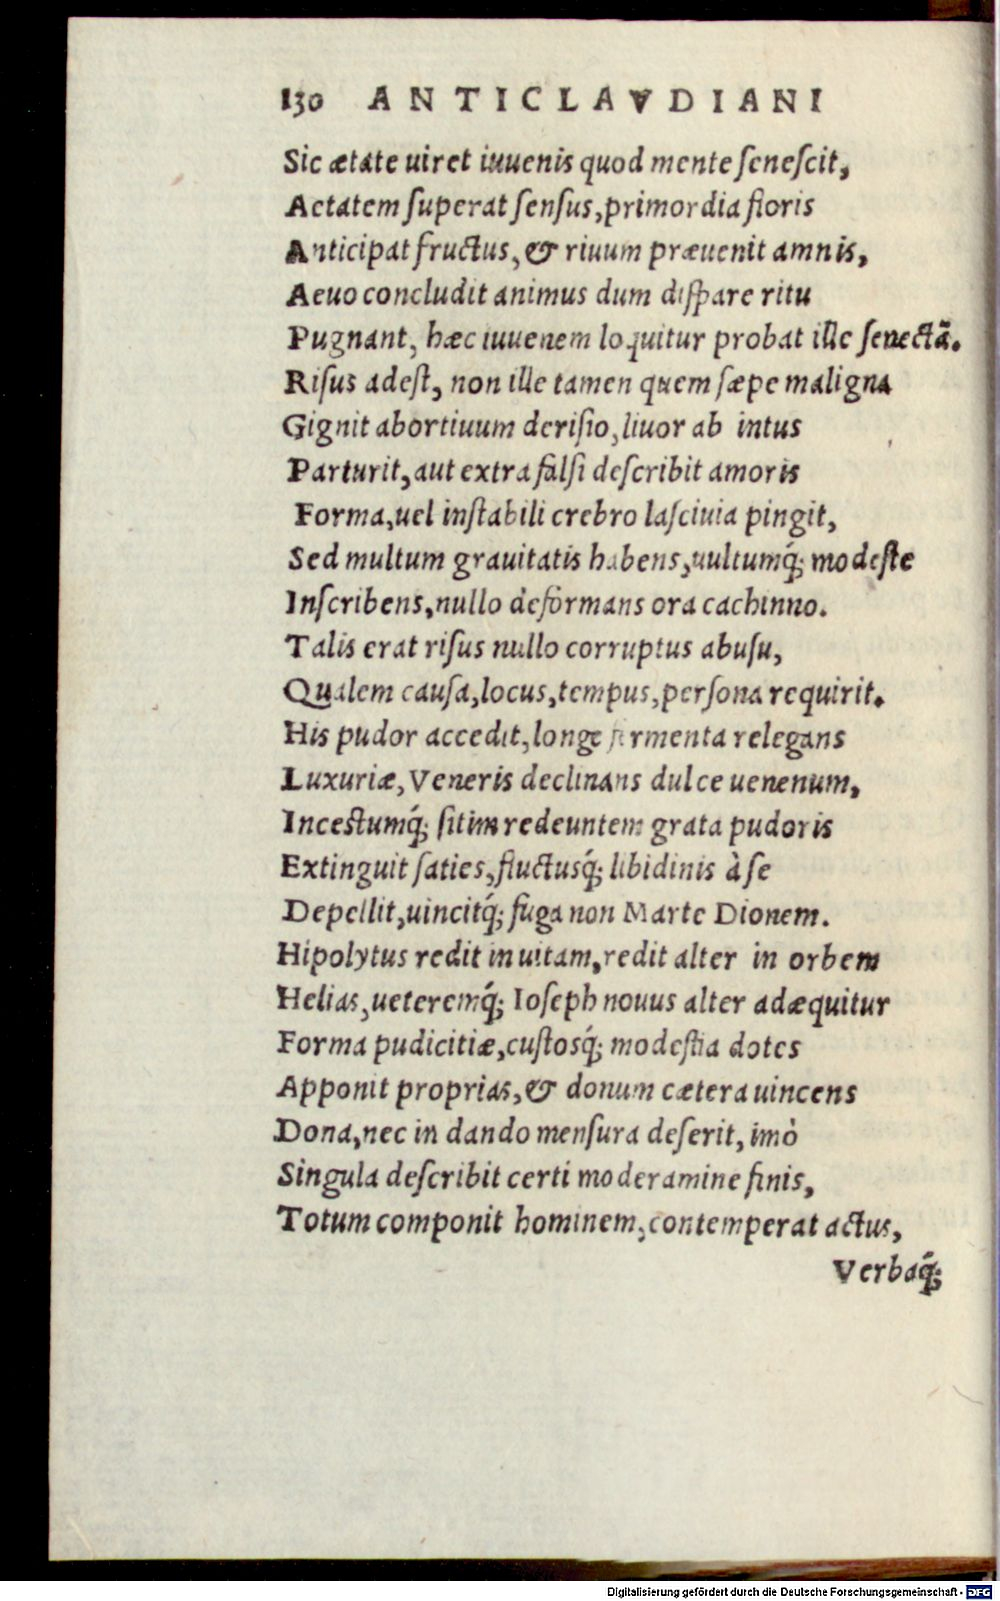 130 ANTICLAVDIANI
Sic ætate uiret iuuenis quod mente ſeneſcit,
Aetatem ſuperat ſenſus, primordia floris
Anticipat fructus, & riuum præuenit amnis,
Aeuo concludit animus dum diſpare ritu
Pugnant, hæc iuuenem loquitur probat ille ſenectã.
Riſus adeſt, non ille tamen quem ſæpe maligna
Gignit abortiuum deriſio, liuor ab intus
Parturit, aut extra falſi deſcribit amoris
Forma, uel inſtabili crebro laſciuia pingit,
Sed multum grauitatis habens, uultumq́; modeſte
Inſcribens, nullo deformans ora cachinno.
Talis erat riſus nullo corruptus abuſu,
Qualem cauſa, locus, tempus, perſona requirit.
His pudor accedit, longe fermenta relegans
Luxuriæ, Veneris declinans dulce uenenum,
Inceſtumq́; ſitim redeuntem grata pudoris
Extinguit ſaties, fluctusq́; libidinis à ſe
Depellit, uincitq́; fuga non Marte Dionem.
Hipolytus redit in uitam, redit alter in orbem
Helias, ueteremq́; Ioſeph nouus alter adæquitur
Forma pudicitiæ, cuſtosq́; modeſtia dotes
Apponit proprias, & donum cætera uincens
Dona, nec in dando menſura deſerit, imò
Singula deſcribit certi moderamine finis,
Totum componit hominem, contemperat actus,
Verbaq́;
Digitalisierung gefördert durch die Deutsche Forschungsgemeinschaft - DFG